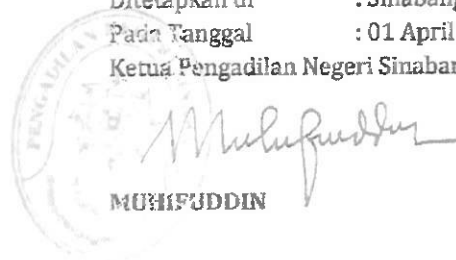 Ditetapkan di : Sinabang
Pada Tanggal : 01 April
Ketua Pengadilan Negeri Sinaban
PENGADILAN
MUHIFUDDIN